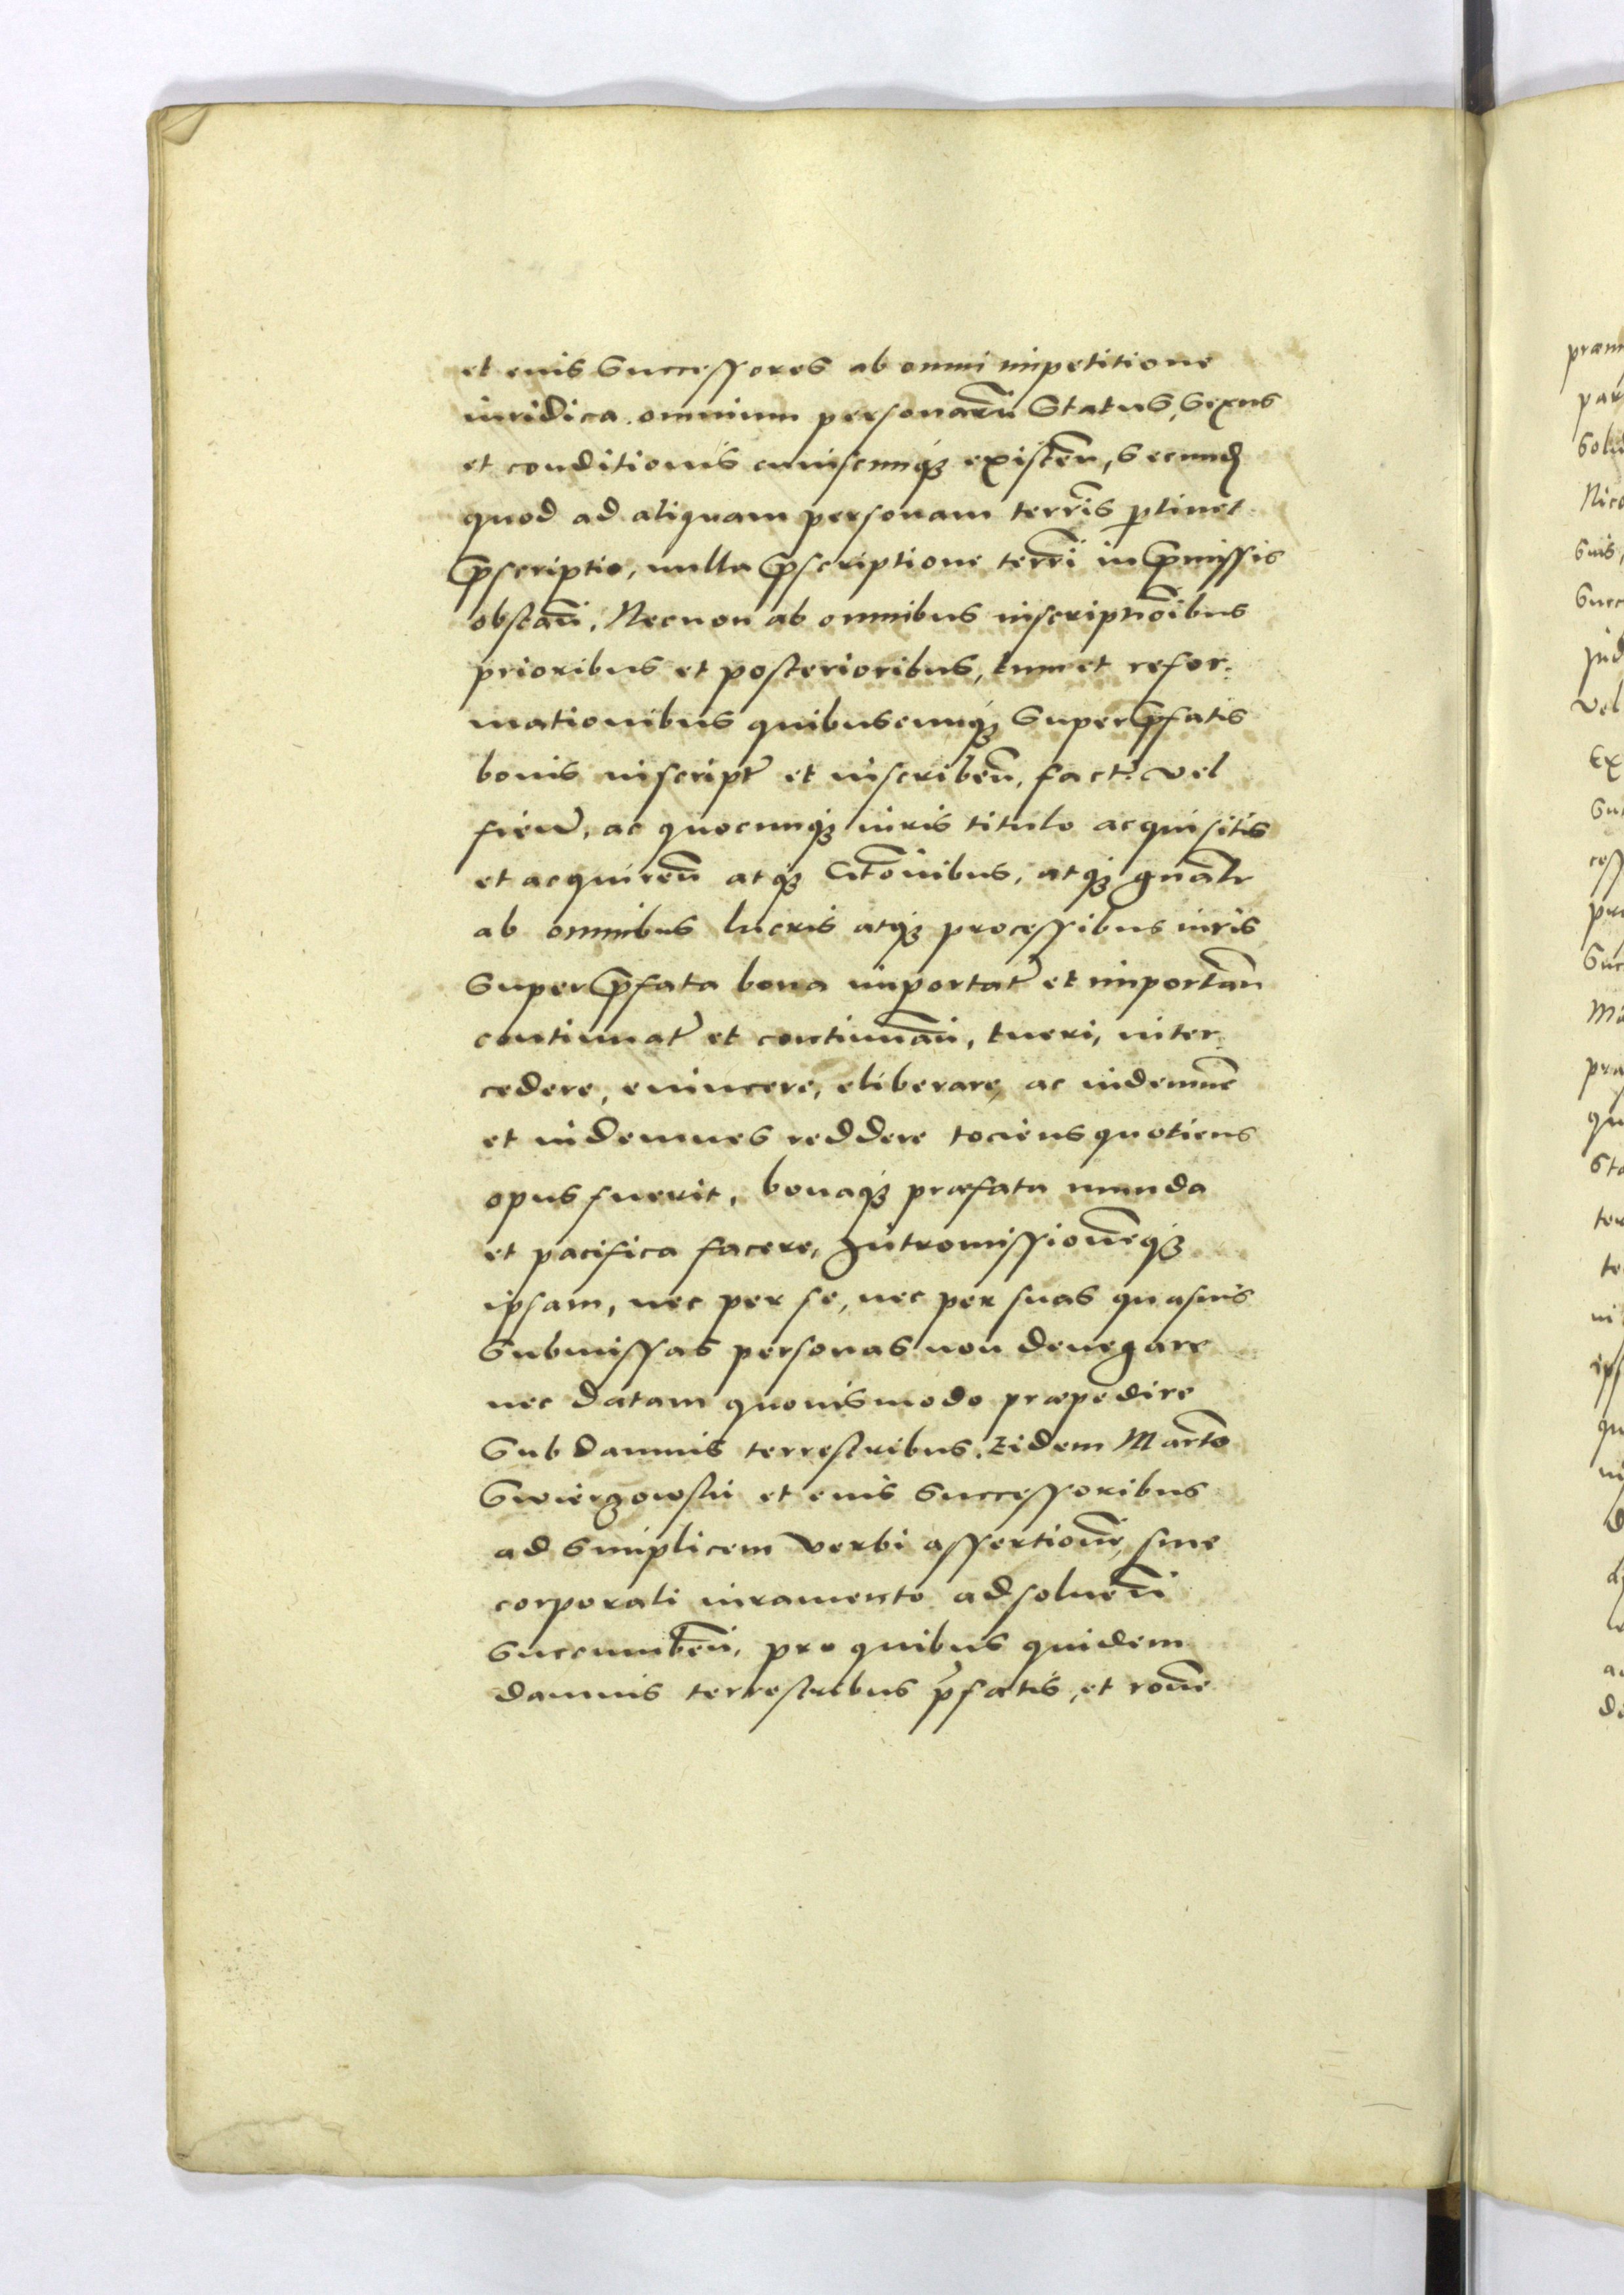 et eius Successores ab omni impetitione
iuridica omnium personarū Status, Sexus
et conditionis cuiuscunq₃ existeñ, Secund
quod ad aliquam personam terrīs ꝑtinet
p̄scriptio, nulla p̄scriptione terrī in p̄missis
obstañ. Necnon ab omnibus inscriptiōibus
prioribus et posterioribus, tum et refor:
mationibus quibuscunq₃ super p̄fatis
bonis inscript͛ et inscribeñ, fact͛ vel
fieñ, ac quocunq₃ iuris titulo acquisitis
et acquireñ atq₃ Citōnibus, atq₃ gnālr
ab omnibus lucris atq₃ processibus iuris
Super p̄fata bona importat͛ et importāñ
continuat͛ et continuañ, tueri, inter:
cedere, euincere, eliberare, ac indemnē
et indemnes reddere tociens quotiens
opus fuerit, bonaq₃ præfata munda
et pacifica facere, Intromissionēq₃
ipsam, nec per se, nec per suas quasuis
Submissas personas non denegare
nec datam quouismodo præpedire
Sub damnis terrestribus. Eidem Martō
Gwiergowski et eius Successoribus
ad Simplicem verbi assertionē, sine
corporali iuramento ad solueñ
Succumbeñ, pro quibus quidem
damnis terrestribus p̄fatis, et rōne
præm
par
Solu
Nico
Suis,
Succ
jud
vel
Ex
cess
pra
qu
Sta